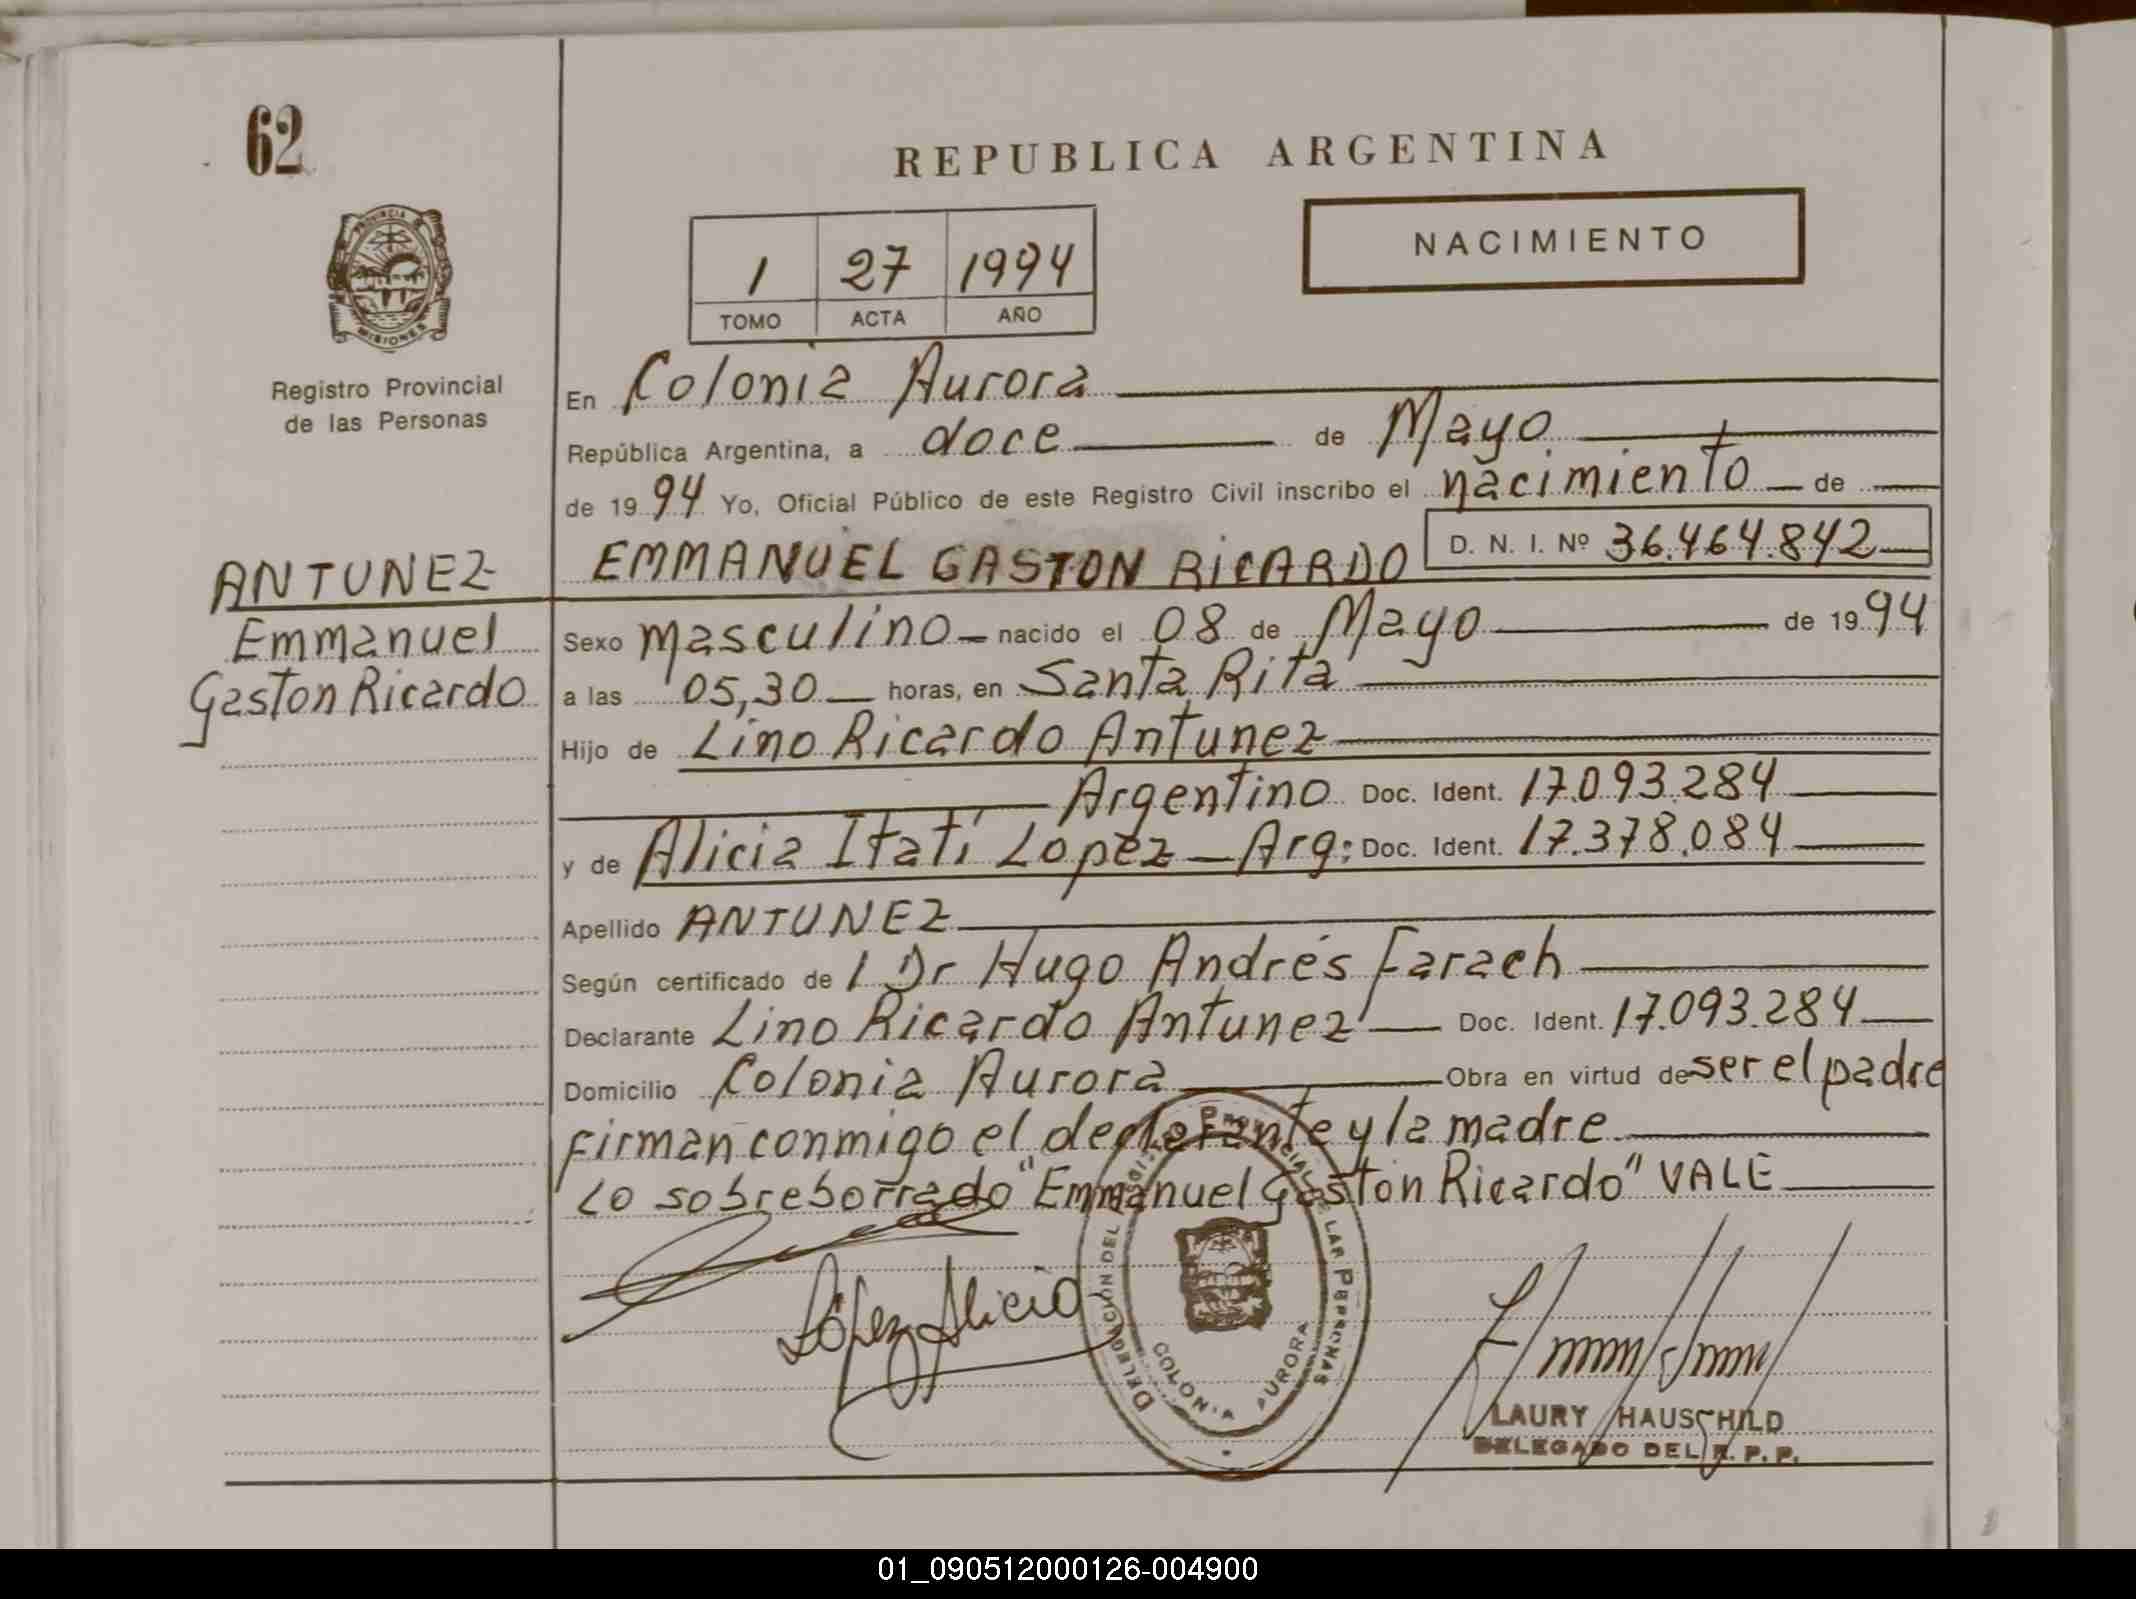 62
REPUBLICA ARGENTINA
NACIMIENTO
1 27 1994
TOMO ACTA AÑO
PROVINCIA
MISIONES
Registro Provincial
de las Personas
ANTUNEZ
Emmanuel
Gaston Ricardo
En Colonia Aurora
República Argentina, a doce de Mayo
de 1994 Yo, Oficial Público de este Registro Civil inscribo el nacimiento de
EMMANUEL GASTON RICARDO D. N. I. Nº 36.464.842
Sexo masculino nacido el 08 de Mayo de 1994
a las 05,30 horas, en Santa Rita
Hijo de Lino Ricardo Antunez
Argentino Doc. Ident. 17.093.284
y de Alicia Itatí Lopez - Arg: Doc. Ident. 17.378.084
Apellido ANTUNEZ
Según certificado de l Dr Hugo Andrés Farach
Declarante Lino Ricardo Antunez Doc. Ident. 17.093.284
Domicilio Colonia Aurora Obra en virtud de ser el padre
firman conmigo el declarante y la madre
Lo sobreborrado "Emmanuel Gaston Ricardo" VALE
López Alicia
DELEGACION DEL REGISTRO PROVINCIAL DE LAR PERSONAS
COLONIA AURORA
LAURY HAUSCHILD
DELEGADO DEL R. P. P.
01_090512000126-004900